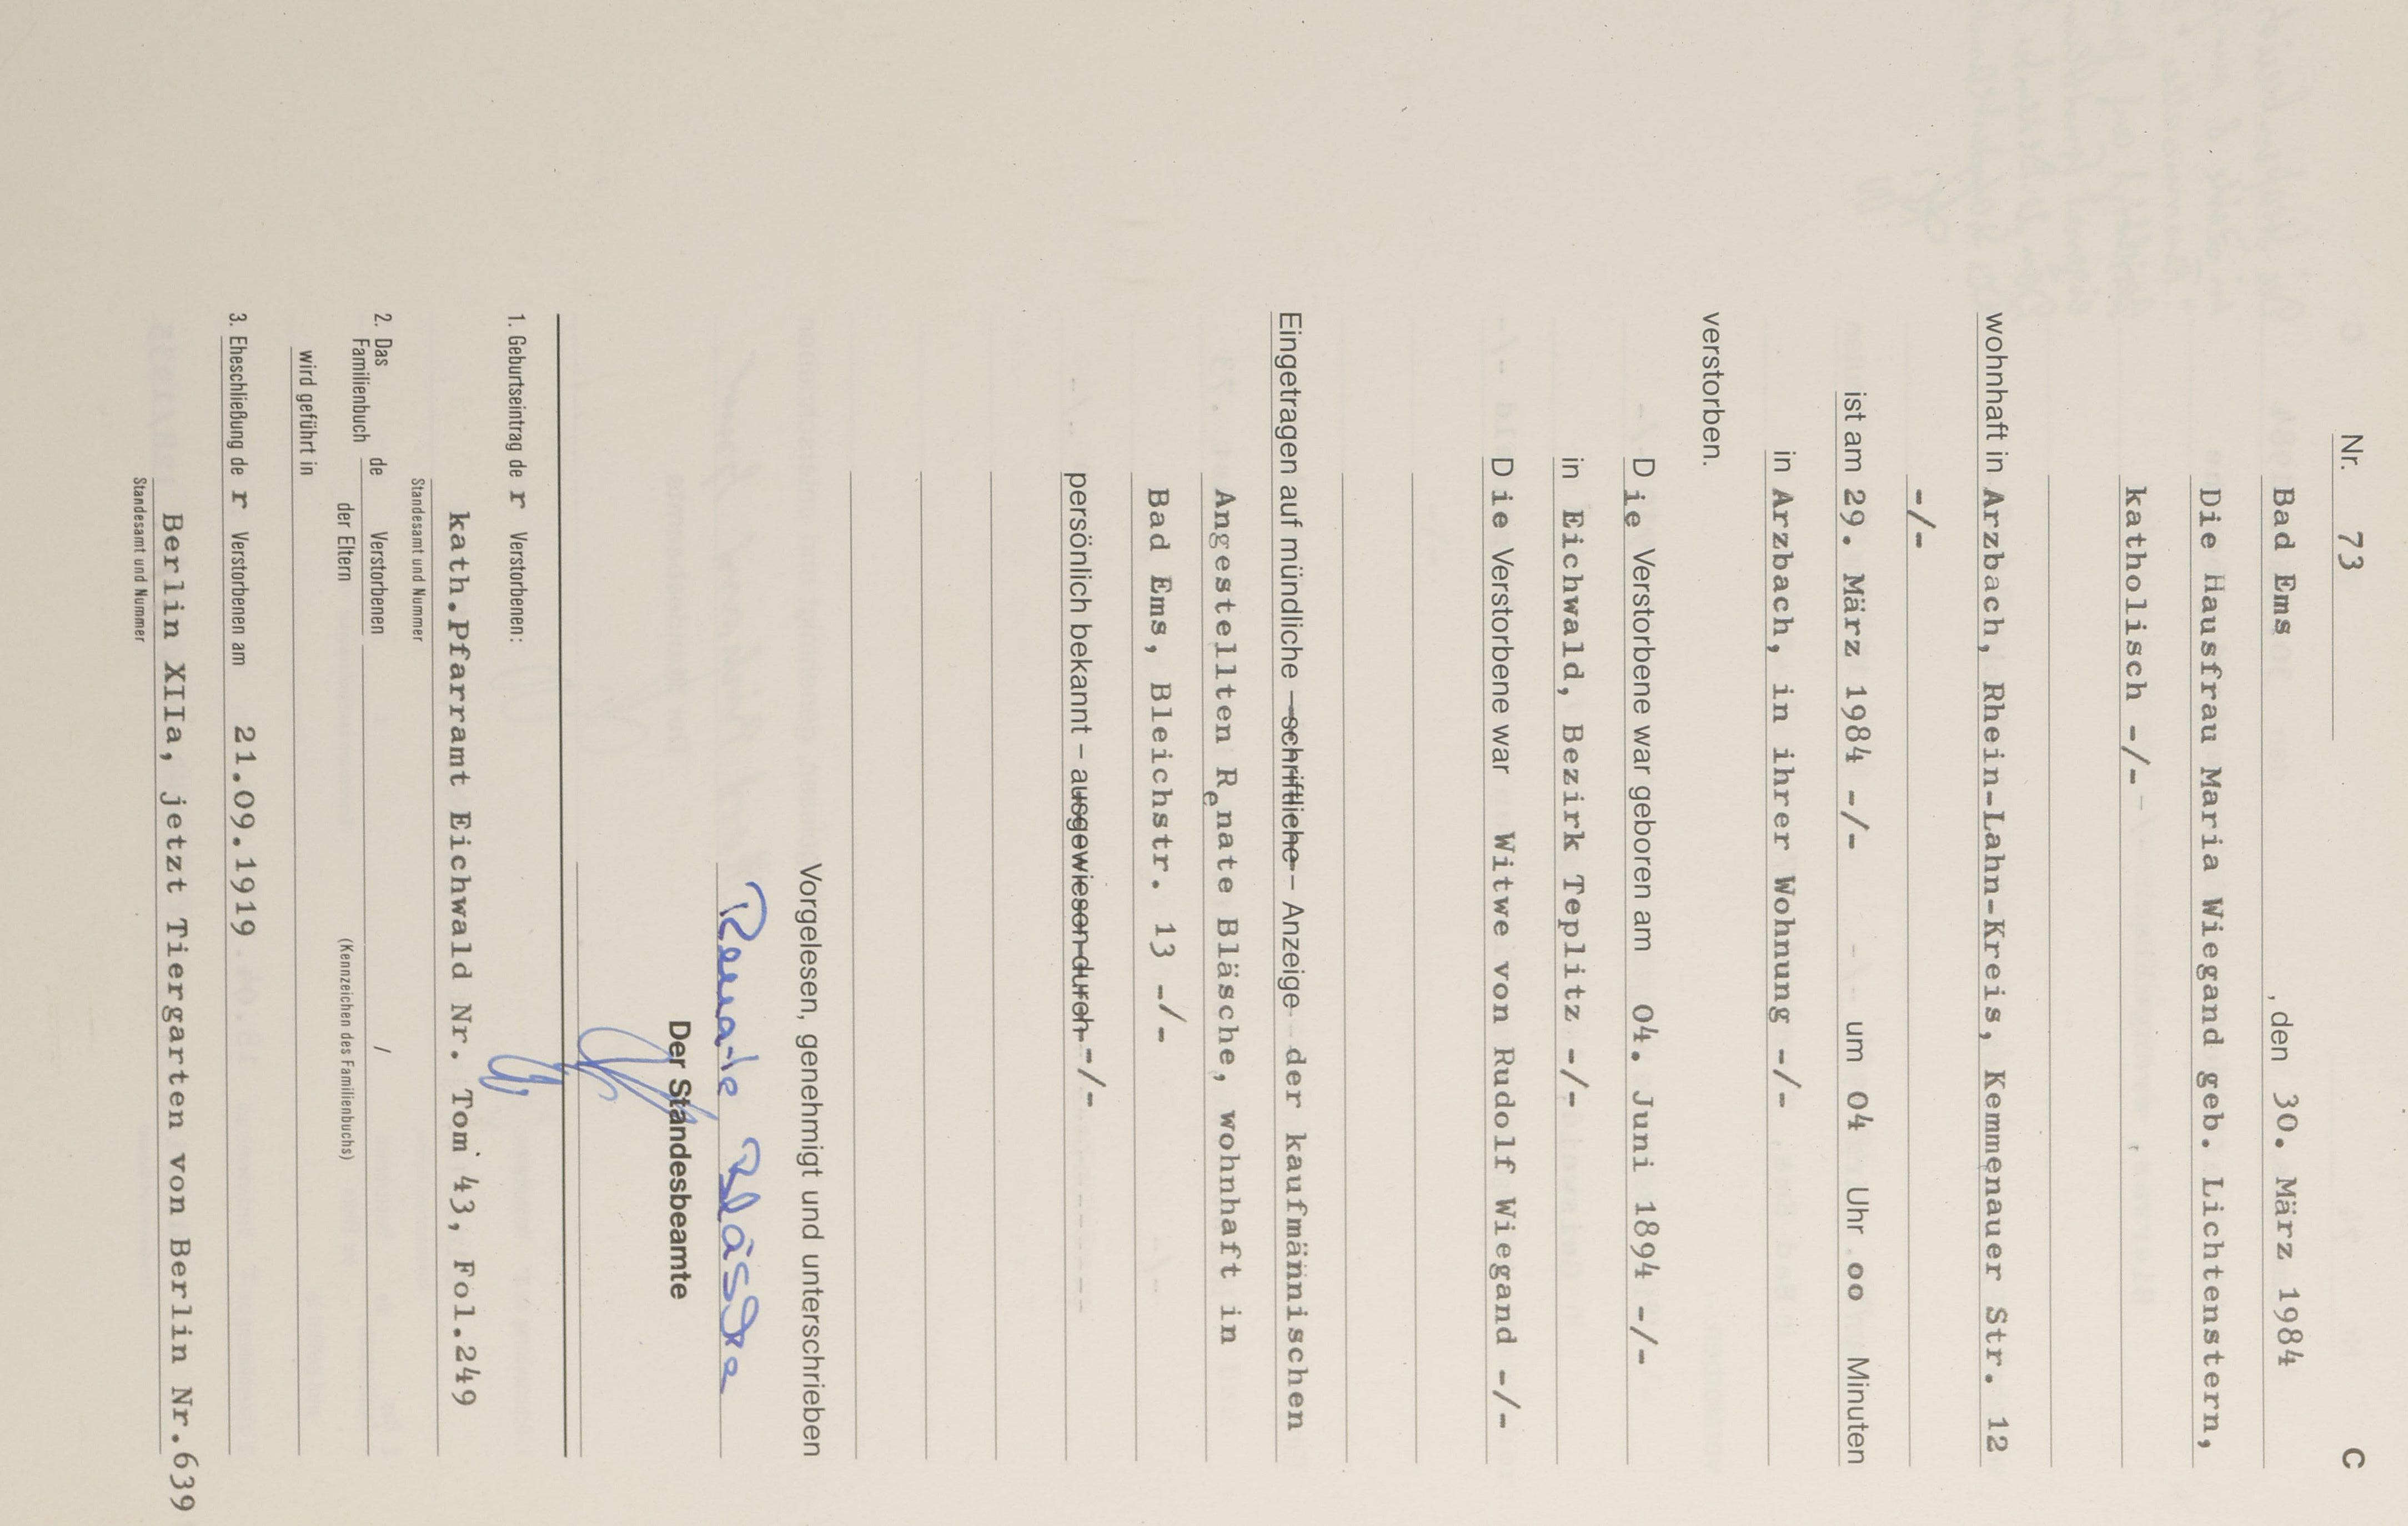 C
Nr. 73
Bad Ems , den 30. März 1984
Die Hausfrau Maria Wiegand geb. Lichtenstern,
katholisch -/-
wohnhaft in Arzbach, Rhein-Lahn-Kreis, Kemmenauer Str. 12
-/-
ist am 29. März 1984 -/- um 04 Uhr oo Minuten
in Arzbach, in ihrer Wohnung -/-
verstorben.
Die Verstorbene war geboren am 04. Juni 1894 -/-
in Eichwald, Bezirk Teplitz -/-
Die Verstorbene war Witwe von Rudolf Wiegand -/-
Eingetragen auf mündliche – schriftliche – Anzeige der kaufmännischen
Angestellten Renate Bläsche, wohnhaft in
Bad Ems, Bleichstr. 13 -/-
persönlich bekannt – ausgewiesen durch -/-
Vorgelesen, genehmigt und unterschrieben
Renate Bläsche
Der Standesbeamte
1. Geburtseintrag de r Verstorbenen:
kath.Pfarramt Eichwald Nr. Tom 43, Fol.249
Standesamt und Nummer
2. Das Familienbuch de Verstorbenen /
der Eltern (Kennzeichen des Familienbuchs)
wird geführt in
3. Eheschließung de r Verstorbenen am 21.09.1919
Berlin XIIa, jetzt Tiergarten von Berlin Nr.639
Standesamt und Nummer